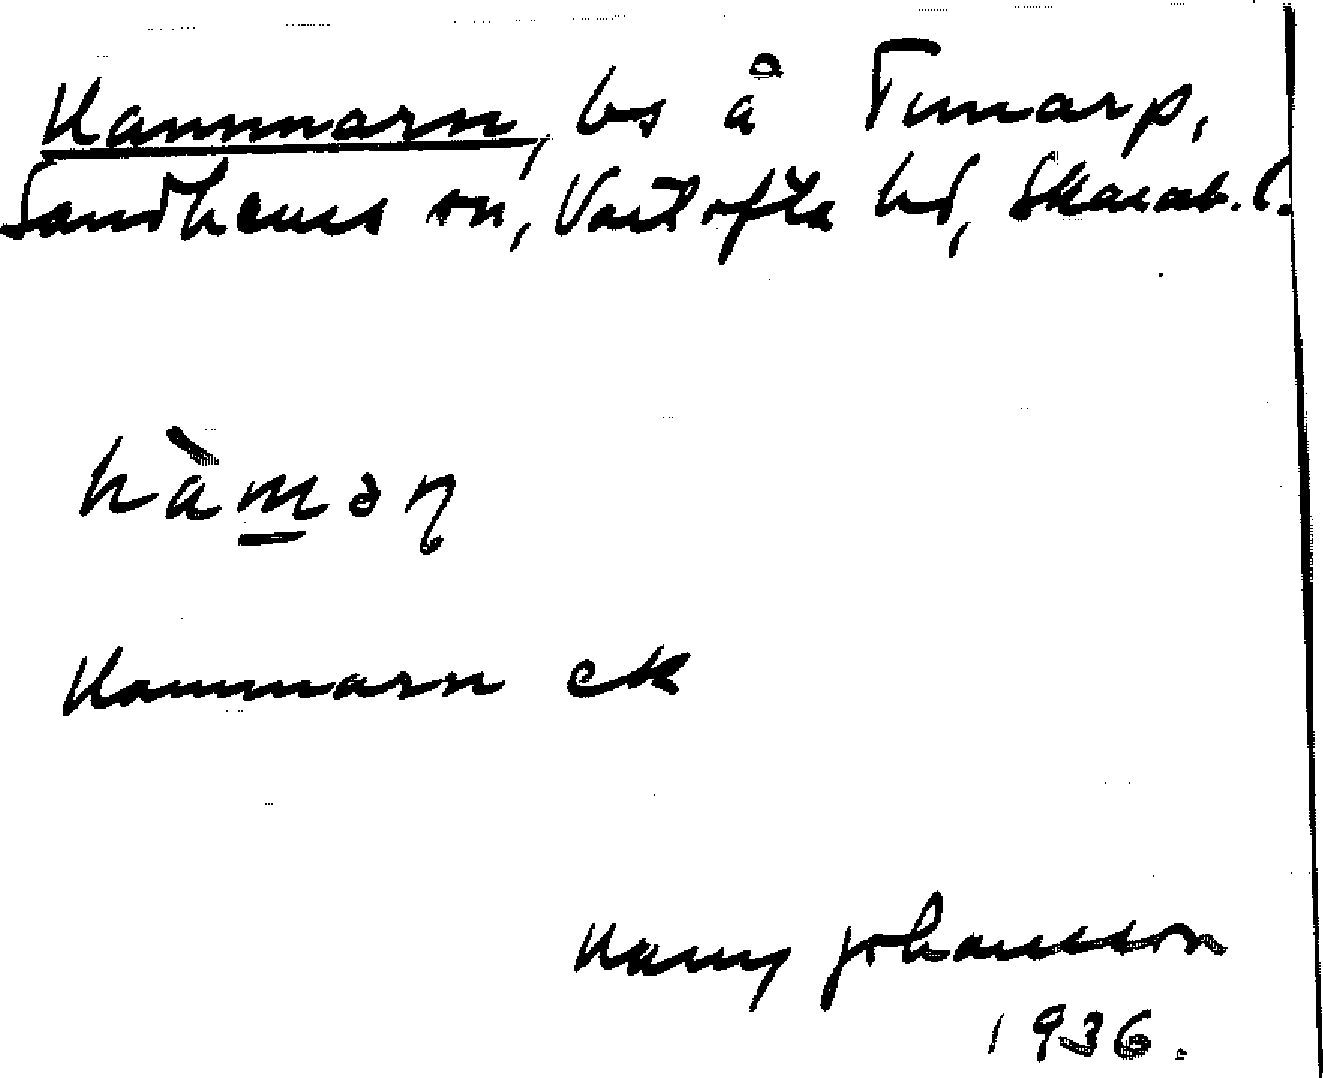 Hammarn, bs å Timarp,
Sandhems sn, Vartofta hd, Skarab. l.
hàmaɳ
Hammarn ek
Harry Johansson
1936.